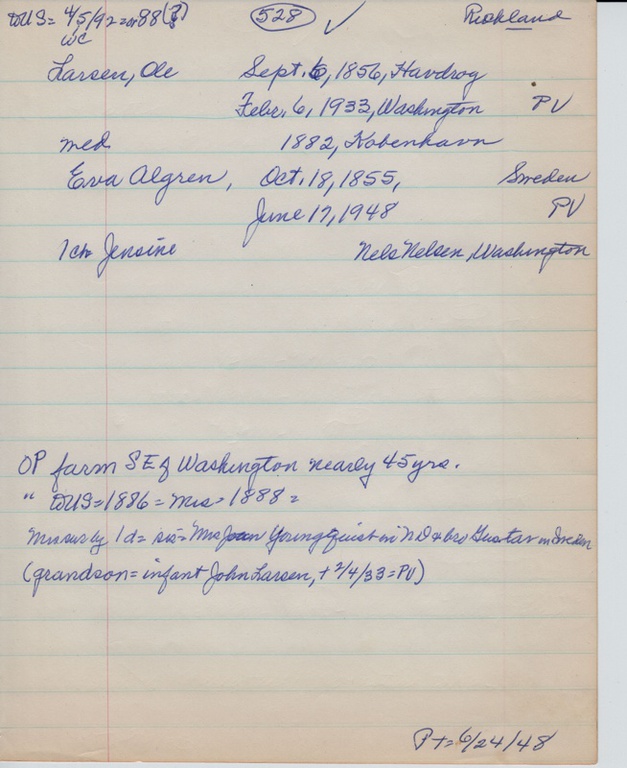 WUS = 4/5/92 = or 88 (?) 528 ✓ Richland
WC
Larsen, Ole Sept. 6, 1856, Havdrog
Febr. 6, 1933, Washington PV
med 1882, Kobenhavn
Eva Algren, Oct. 18, 1855, Sweden
June 17, 1948 PV
1 ch Jensine Nels Nelsen, Washington
OP farm SE of Washington nearly 45 yrs.
" WUS = 1886 = Mrs = 1888 =
Mrs surv by 1 d = sis = Mrs Youngquist in ND & bro Gustav in Sweden
(grandson = infant John Larsen, + 2/4/33 = PV)
P + = 6/24/48